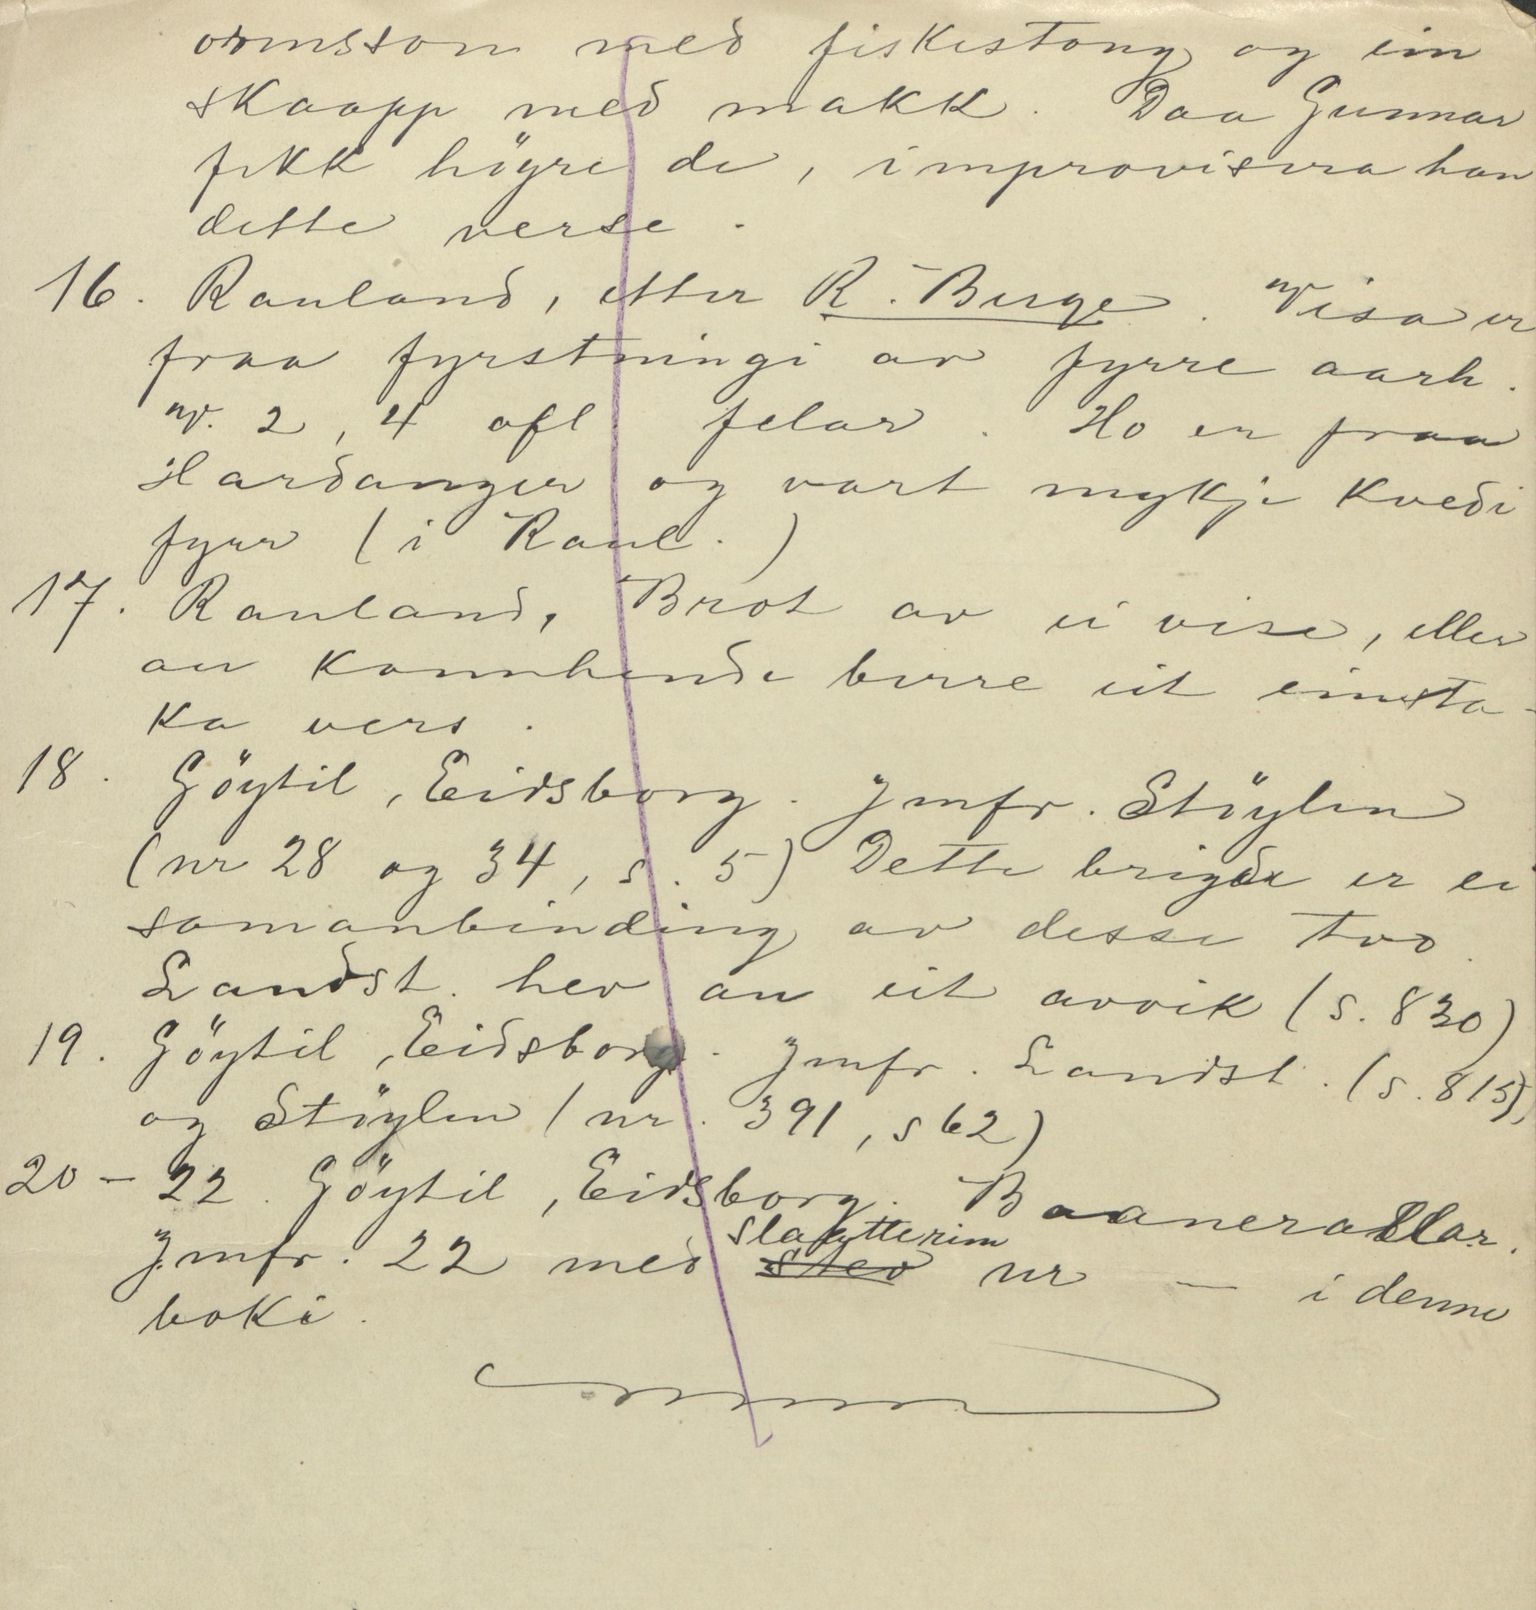 ormsson med fiskestong og ein
skaapp med makk. Daa Gunnar
fekk höyre de, improvisera han
dette verse.
16. Rauland, etter R. Berge. Visa er
fraa fyrstningi av fyrre aarh.
V. 2, 4 ofl felar. Ho er fraa
Hardanger og vart mykje kvedi
fyrr (i Raul.)
17. Rauland, Brot av ei vise, eller
au kannhende berre eit einsta-
ka vers.
18. Göytil, Eidsborg. Jmfr. Stöylen
(nr 28 og 34, s. 5) Dette brigde er ei
samanbinding av desse tvo.
Landst. hev au eit avvik (s. 830)
19. Göytil, Eidsborg. Jmfr. Landst. (s. 815),
og Stöylen (nr. 391, s 62)
20-22. Göytil, Eidsborg. Baaneradlar.
slaatterim
Jmfr. 22 med stev nr — i denne
boki.